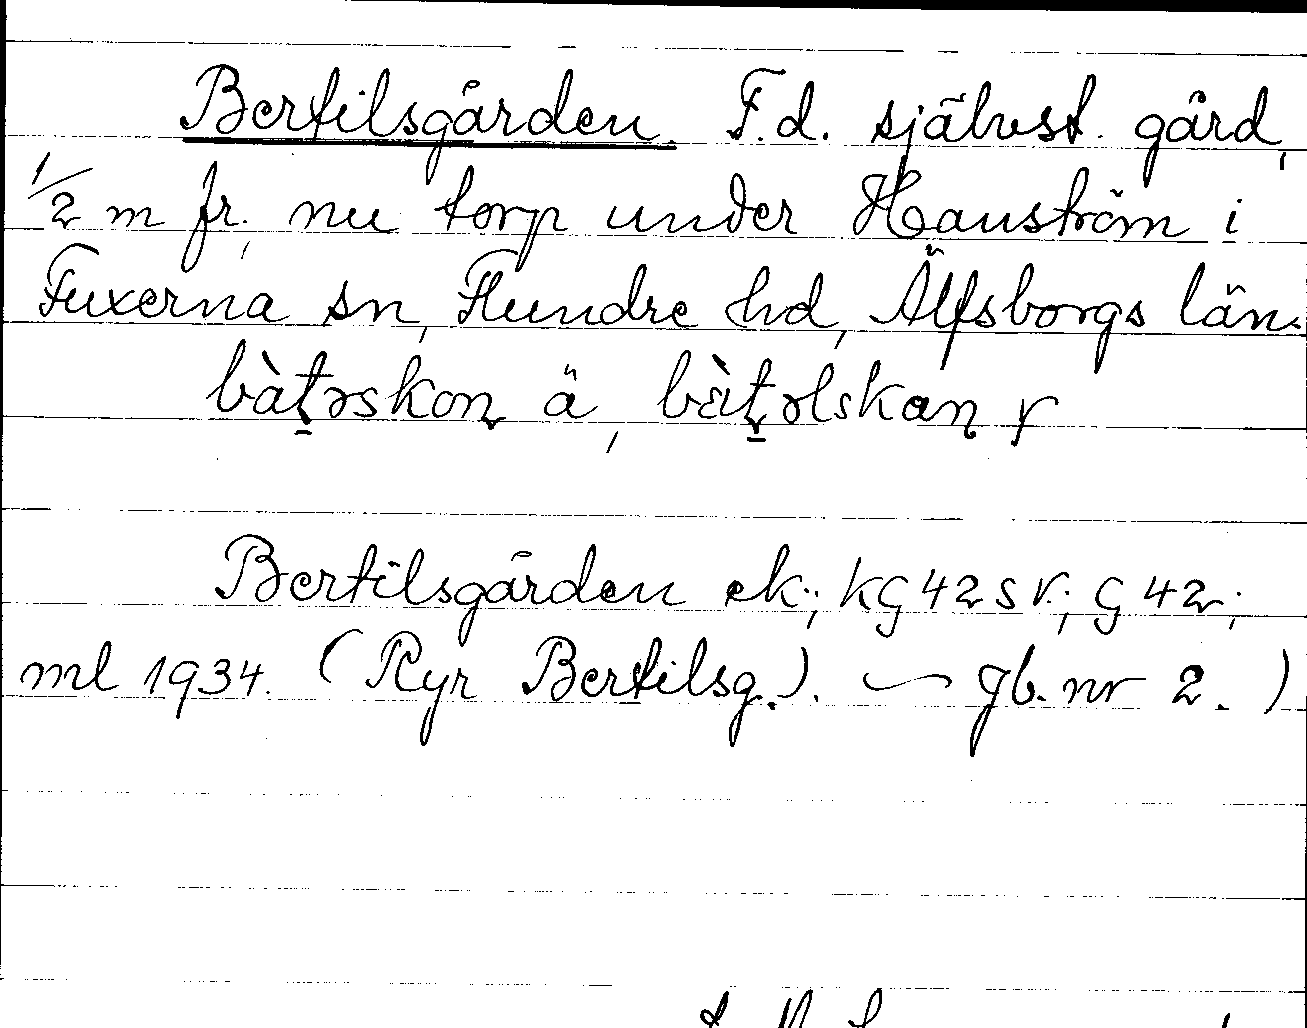 Bertilsgården. F.d. självst. gård,
1/2 m fr., nu torp under Hanström i
Fuxerna sn, Flundre hd, Älfsborgs län.
bàt̲ɘskon ä, bɛ̀t̲ɘlskan r
Bertilsgården ek.; KG 42 SV.; G 42;
ml 1934. (Ryr Bertilsg.). ⁓ gb. nr 2. )